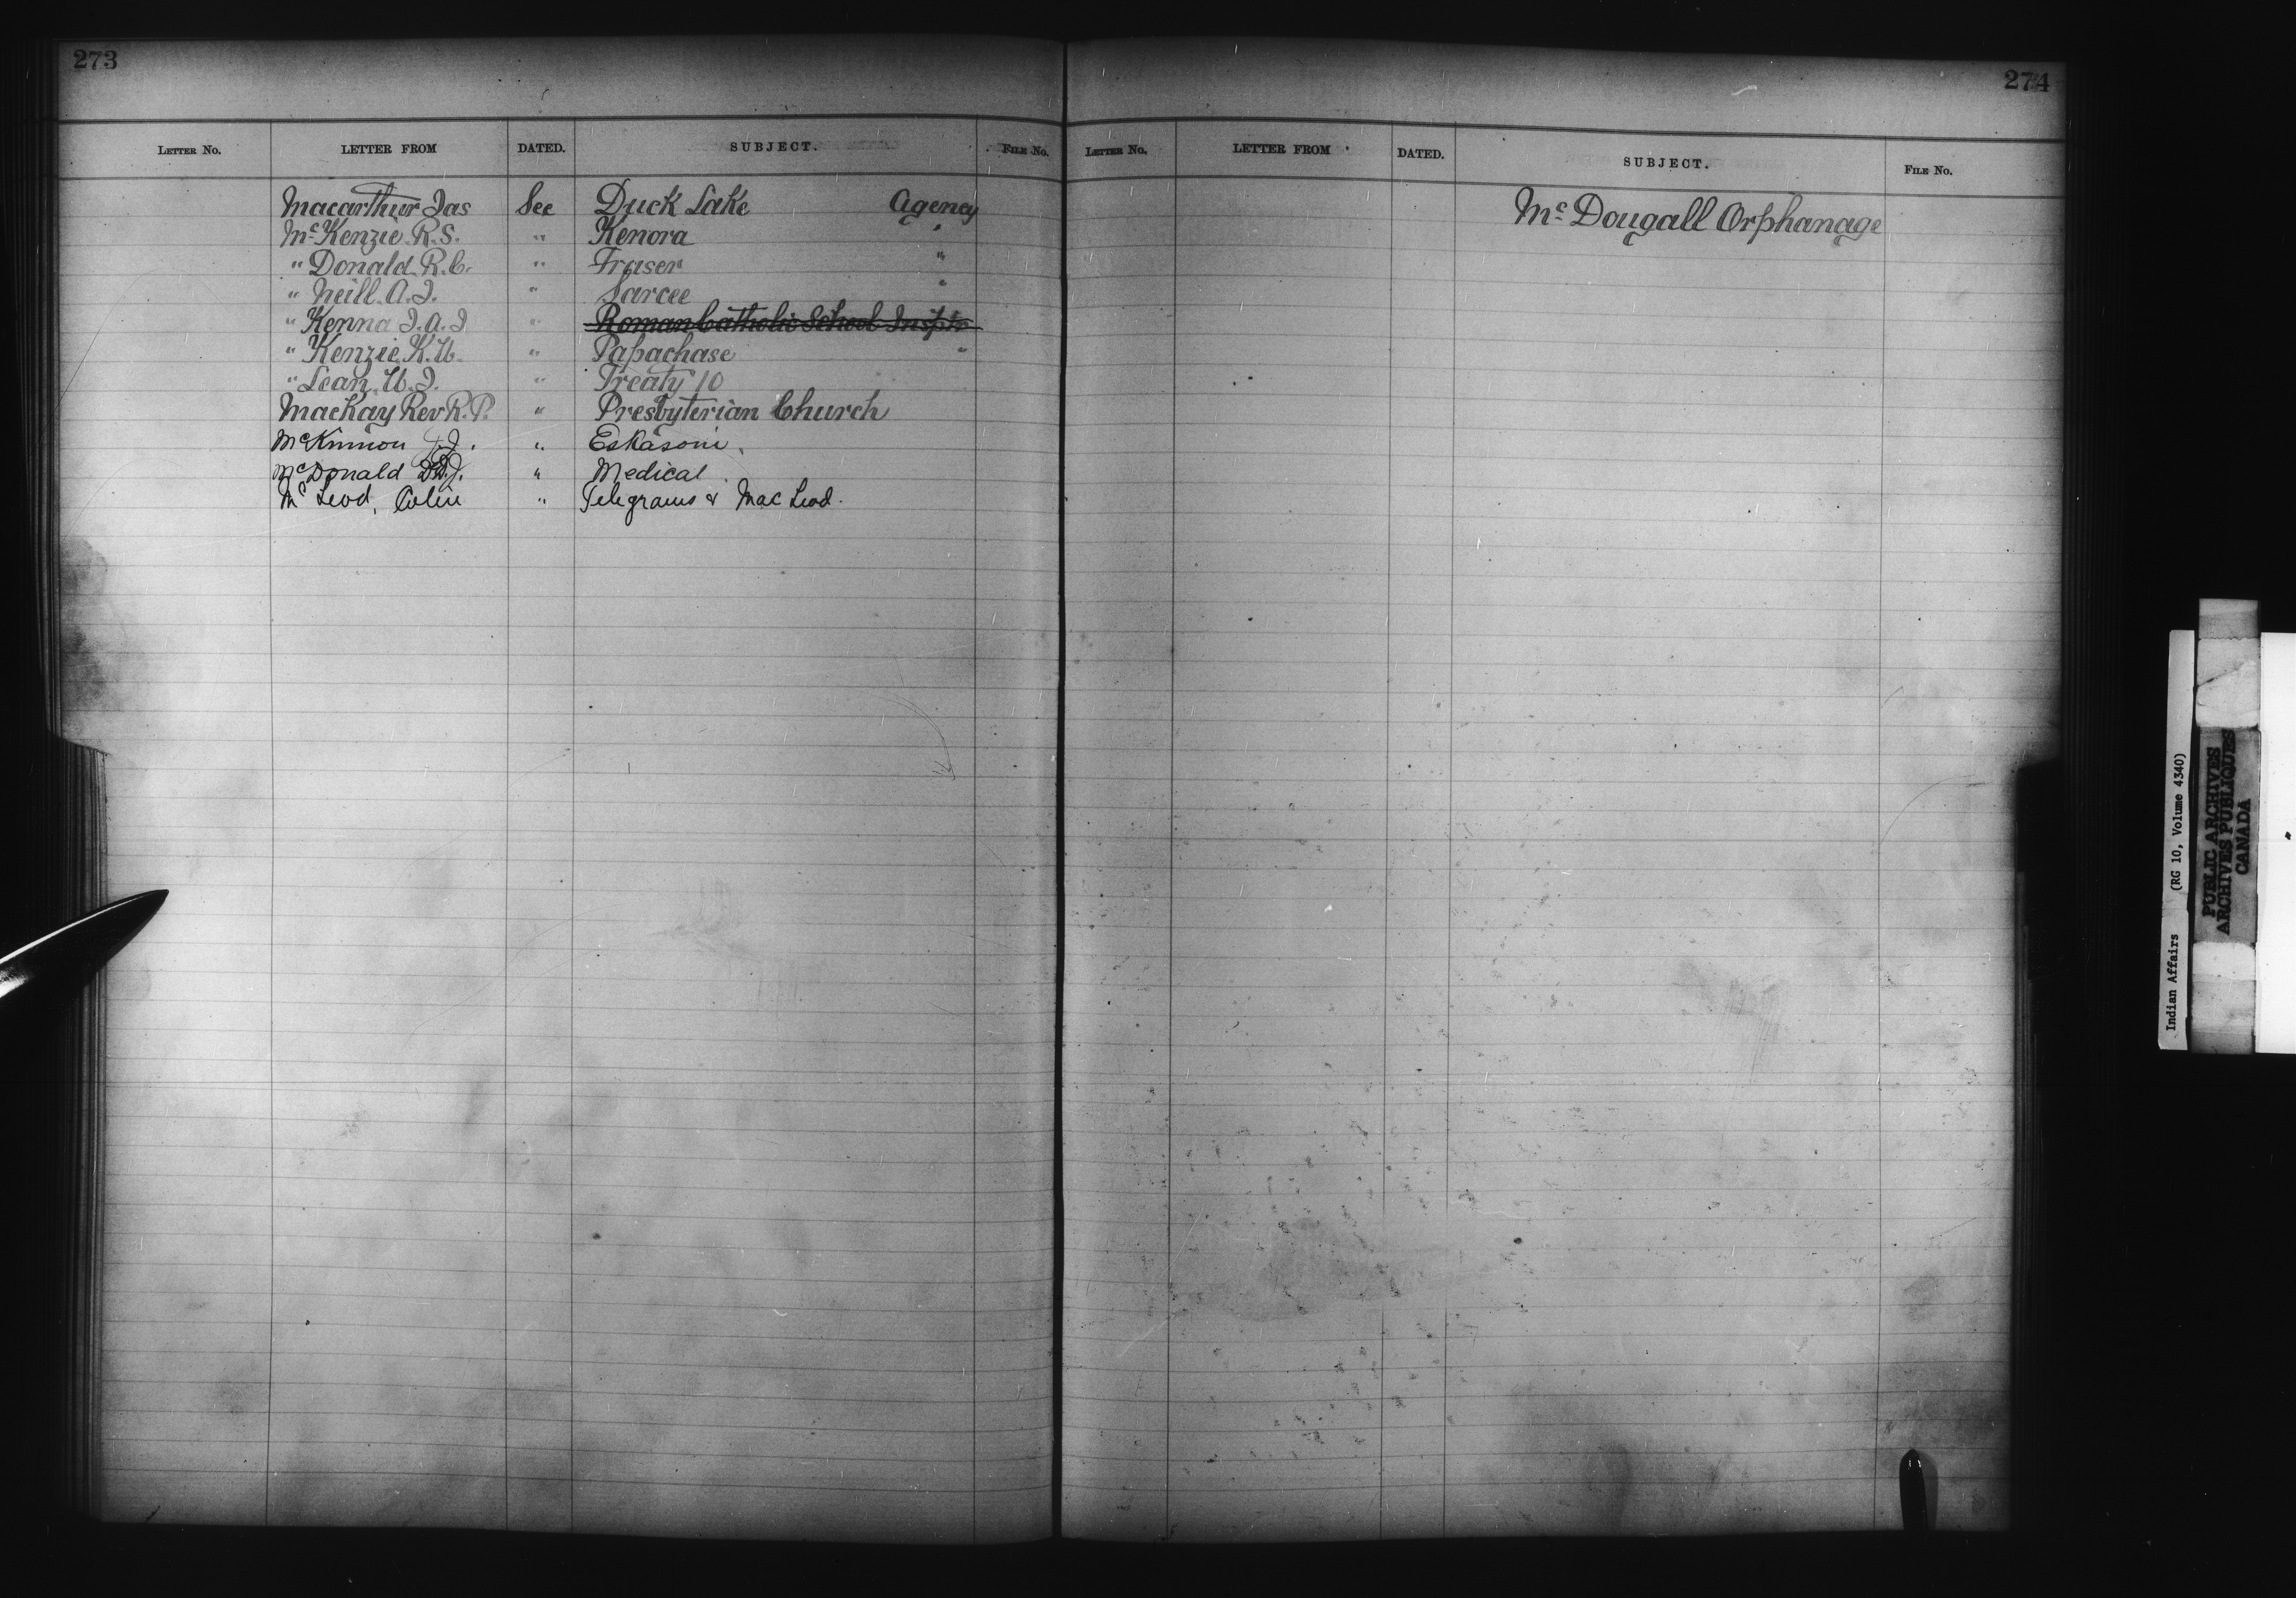 273
Letter No. LETTER FROM DATED. SUBJECT. File No.
Macarthur Jas See Duck Lake Agency
McKenzie R.S. " Kenora "
" Donald R.C. " Fraser "
" Neill A.J. " Sarcee "
" Kenna J.A.J " Roman Catholic School Insptr
" Kenzie K.W. " Papachase "
" Lean W.J. " Treaty 10
MacKay Rev R.P. " Presbyterian Church
McKinnon " Eskasoni
McDonald " Medical
McLeod, Colin " Telegrams & MacLeod.
274
Letter No. LETTER FROM DATED. SUBJECT. File No.
McDougall Orphanage
Indian Affairs (RG 10, Volume 4340)
PUBLIC ARCHIVES
ARCHIVES PUBLIQUES
CANADA